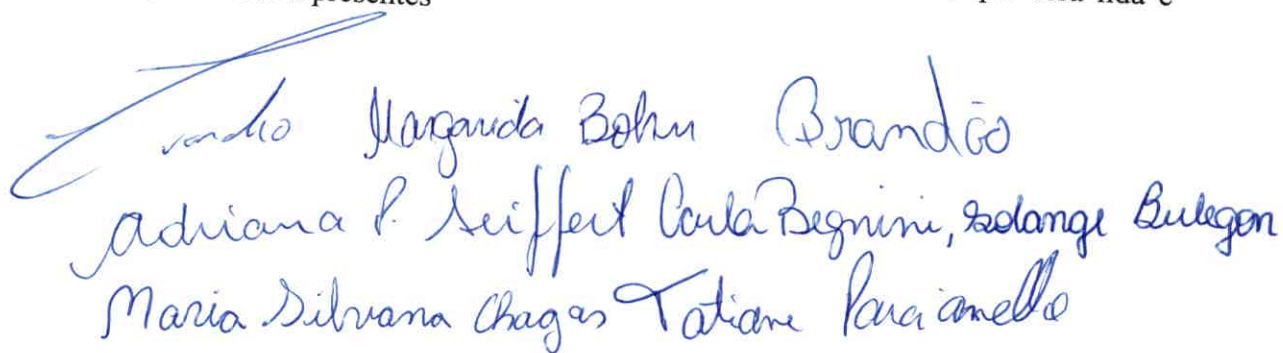 presentes lida e
Margarida Bohn Brandão
Adriana P. Seiffert Carla Begnini, Solange Bulegon
Maria Silvana Chagas Tatiane Parcianello